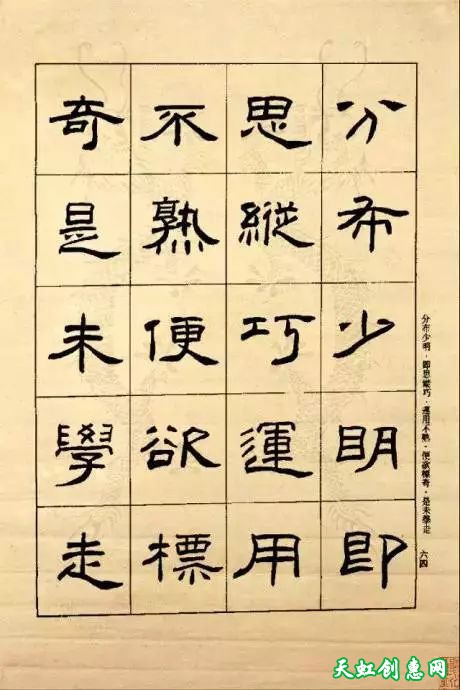 分布少明即
思縱巧運用
不熟便欲標
奇是未學走
分布少明·即思縱巧·運用不熟·便欲標奇·是未學走
六四
天虹创惠网